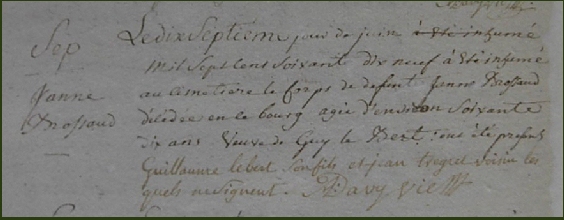 Sep
Janne
Brossaud
Le dix Septiem jour de juin à été inhumé
mil Sept Cens Soixante dix neuf à été inhumé
au cimetiere le Corps de defunt Janne Brossaud
décédée en ce bourg agée d'environ Soixante
dix ans Veuve de Guy le Bert ont été presents
Guillaume lebert Son fils et jean tregret voisin les
quels ne signent. Davy vic